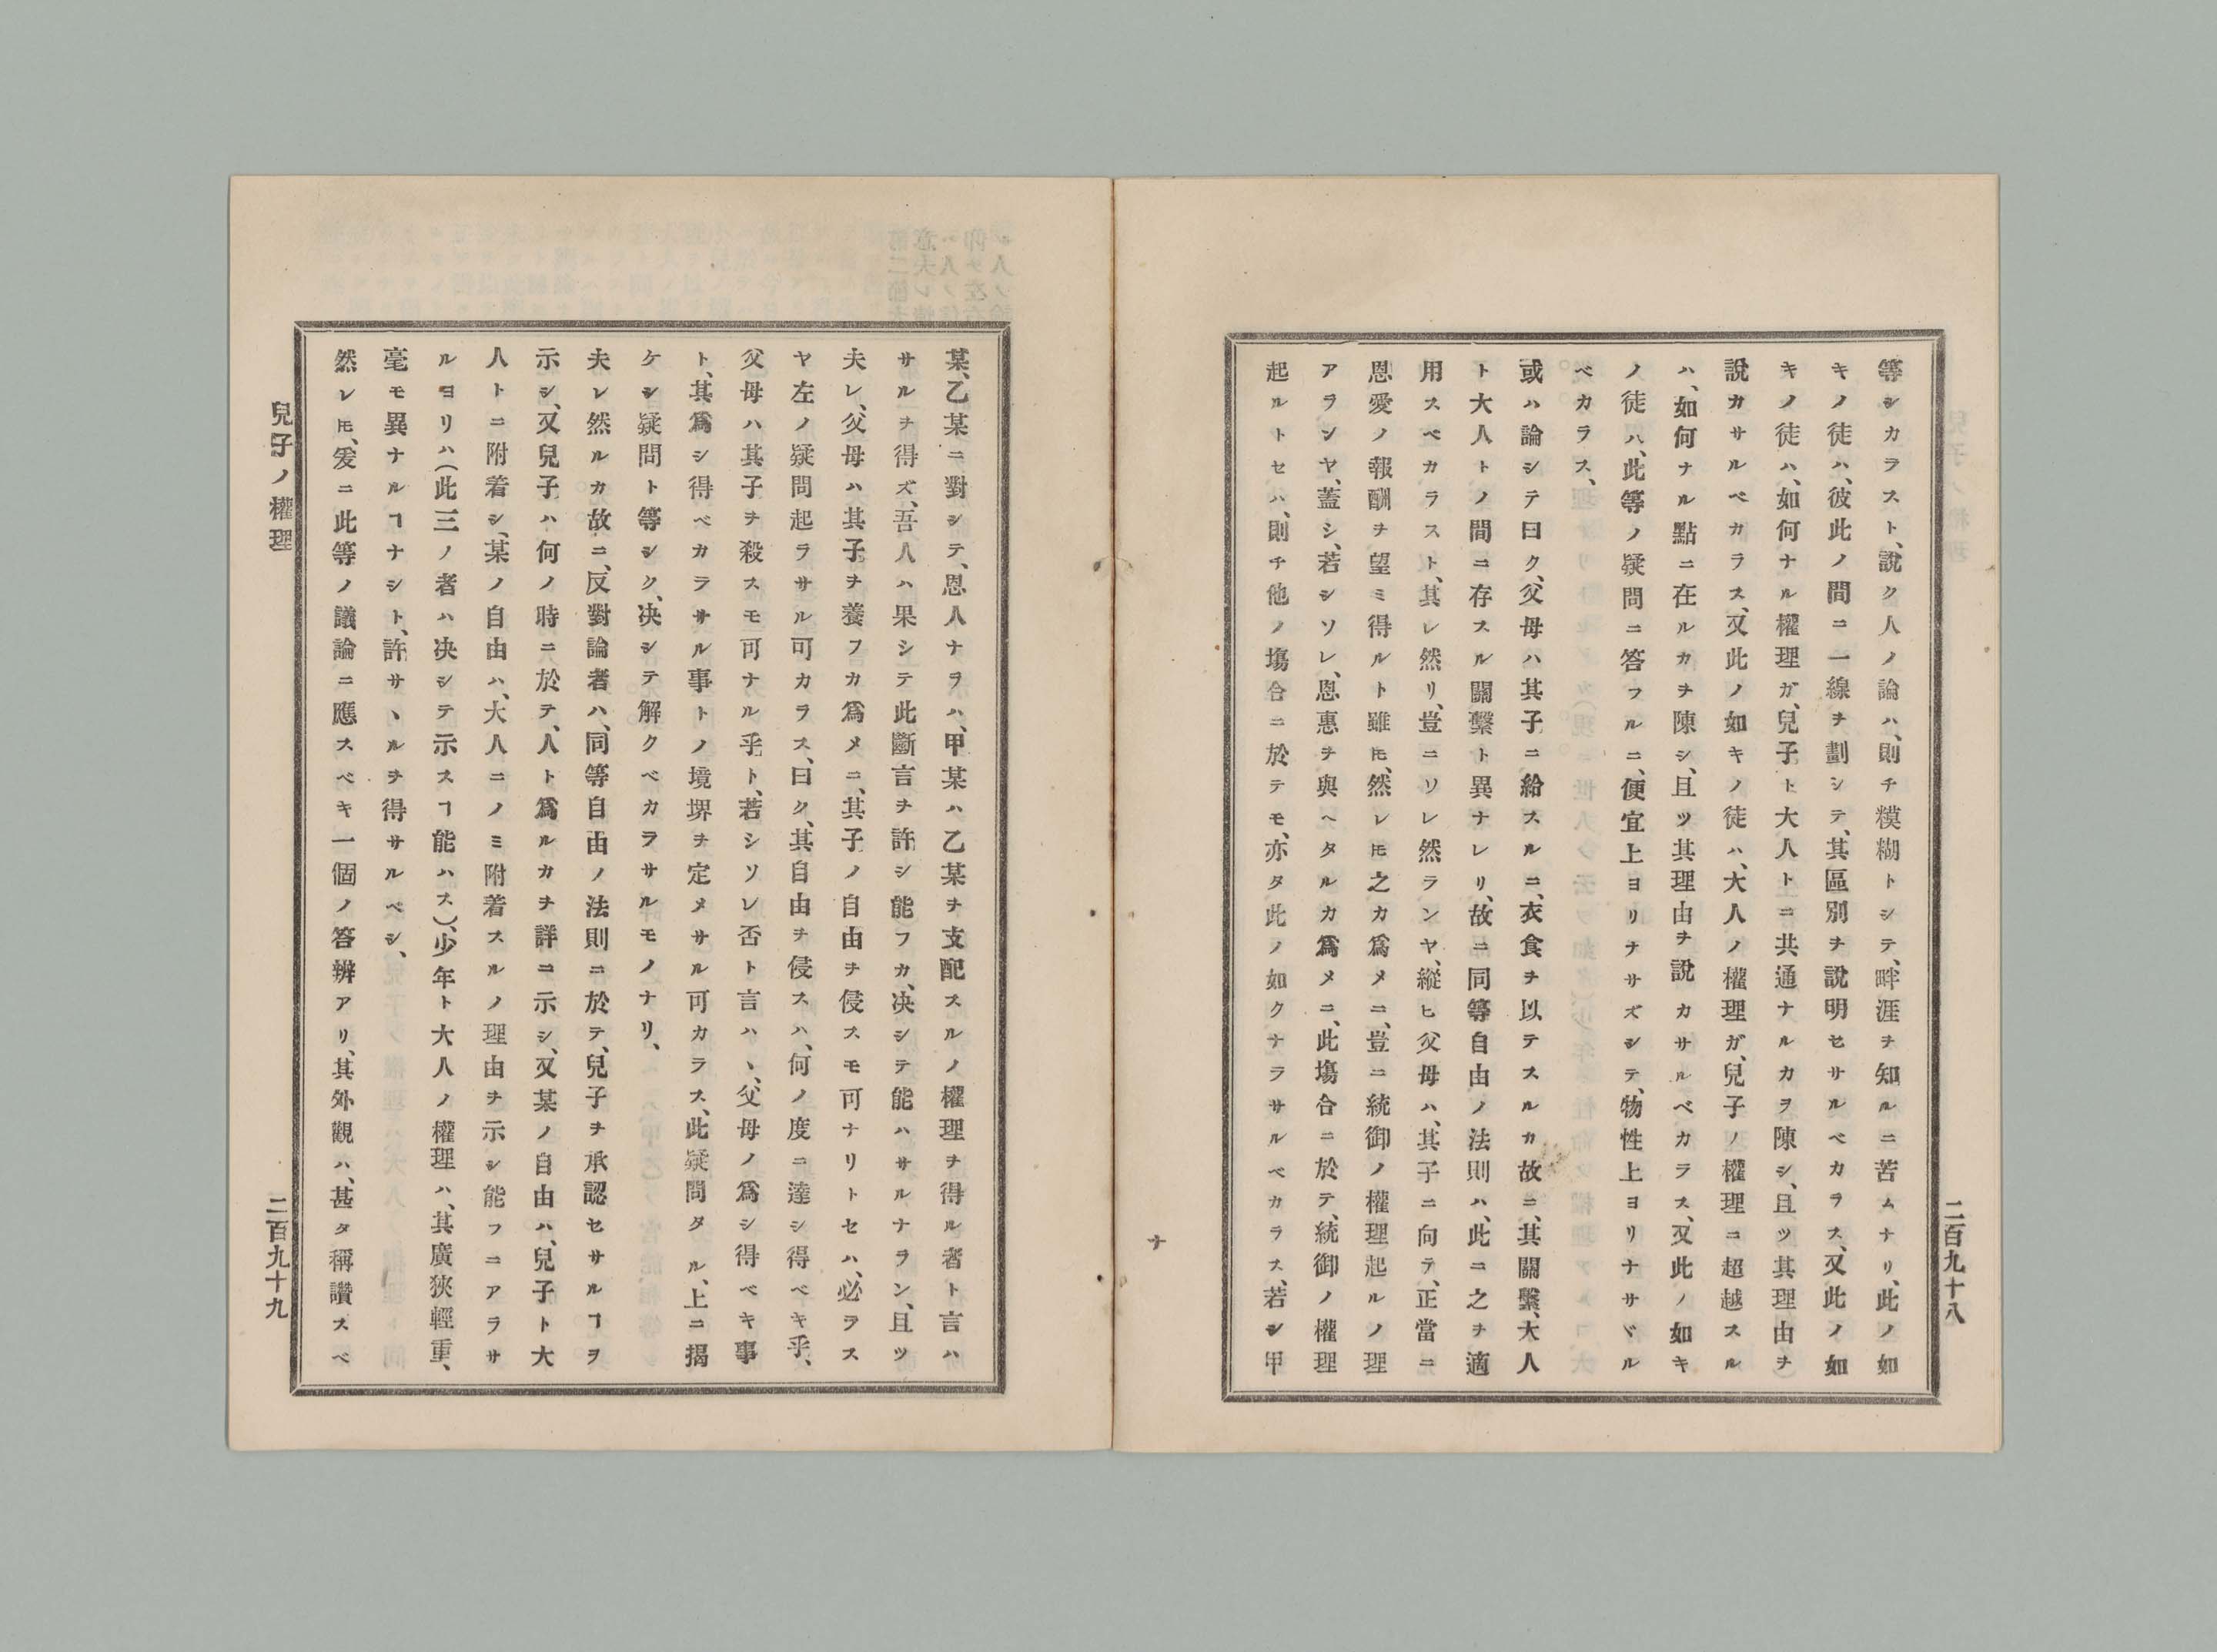 二百九十八
等シカラスト、說ク人ノ論ハ、則チ糢糊トシテ、畔涯ヲ知ルニ苦ムナリ、此ノ如
キノ徒ハ、彼此ノ間ニ一線ヲ劃シテ、其區別ヲ說明セサルベカラス、又此ノ如
キノ徒ハ、如何ナル權理ガ、兒子ト大人トニ共通ナルカヲ陳シ、且ツ其理由ヲ
說カサルベカラス、又此ノ如キノ徒ハ、大人ノ權理ガ、兒子ノ權理ニ超越スル
ハ、如何ナル點ニ在ルカヲ陳シ、且ツ其理由ヲ說カサルベカラス、又此ノ如キ
ノ徒ハ、此等ノ疑問ニ答フルニ、便宜上ヨリナサズシテ、物性上ヨリナサヾル
ベカラス、
或ハ論シテ曰ク、父母ハ其子ニ給スルニ、衣食ヲ以テスルカ故ニ、其關繫、大人
ト大人トノ間ニ存スル關繫ト異ナレリ、故ニ同等自由ノ法則ハ、此ニ之ヲ適
用スベカラスト、其レ然リ、豈ニソレ然ランヤ、縱ヒ父母ハ、其子ニ向テ、正當ニ
恩愛ノ報酬ヲ望ミ得ルト雖𪜈、然レ𪜈之カ爲メニ、豈ニ統御ノ權理起ルノ理
アランヤ、蓋シ、若シソレ、恩惠ヲ與ヘタルカ爲メニ、此塲合ニ於テ、統御ノ權理
起ルトセハ、則チ他ノ塲合ニ於テモ、亦タ此ノ如クナラサルベカラス、若シ甲
ナ
某、乙某ニ對シテ、恩人ナラハ、甲某ハ乙某ヲ支配スルノ權理ヲ得ル者ト言ハ
サルヲ得ズ、吾人ハ果シテ此斷言ヲ許シ能フカ、决シテ能ハサルナラン、且ツ
夫レ、父母ハ其子ヲ養フカ爲メニ、其子ノ自由ヲ侵スモ可ナリトセハ、必ラス
ヤ左ノ疑問起ラサル可カラス、曰ク、其自由ヲ侵スハ、何ノ度ニ達シ得ベキ乎、
父母ハ其子ヲ殺スモ可ナル乎ト、若シソレ否ト言ハヽ、父母ノ爲シ得ベキ事
ト、其爲シ得ベカラサル事トノ境堺ヲ定メサル可カラス、此疑問タル、上ニ揭
ケシ疑問ト等シク、决シテ解クベカラサルモノナリ、
夫レ然ルカ故ニ、反對論者ハ、同等自由ノ法則ニ於テ、兒子ヲ承認セサルヿヲ
示シ、又兒子ハ何ノ時ニ於テ、人ト爲ルカヲ詳ニ示シ、又某ノ自由ハ、兒子ト大
人トニ附着シ、某ノ自由ハ、大人ニノミ附着スルノ理由ヲ示シ能フニアラサ
ルヨリハ（此三ノ者ハ决シテ示スヿ能ハス）、少年ト大人ノ權理ハ、其廣狹輕重、
毫モ異ナルヿナシト、許サヽルヲ得サルベシ、
然レ𪜈、爰ニ此等ノ議論ニ應スベキ一個ノ答辨アリ、其外觀ハ、甚タ稱讚スベ
兒子ノ權理
二百九十九